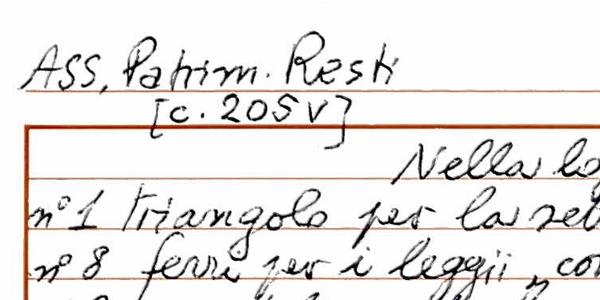 ASS, Patrim. Resti
[c. 205v]
Nella lo
n° 1 triangolo per la set
n° 8 ferri per i leggii, con